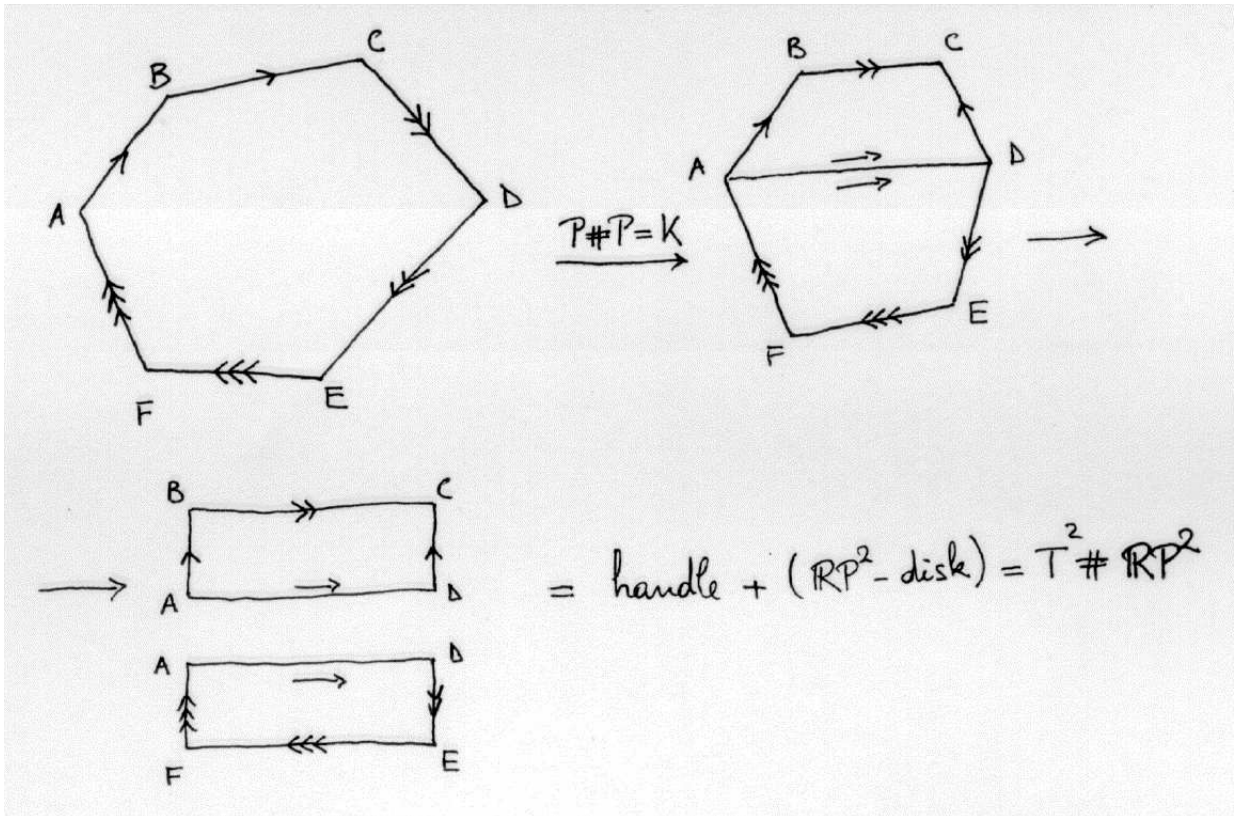 B C
A D
F E
P#P=K
B C
A D
F E
B C
A D
= handle + (RP² - disk) = T² # RP²
A D
F E